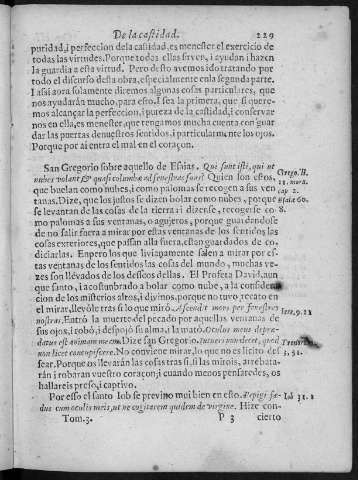 De la castidad. 229
puridad, i perfeccion dela castidad, es menester el exercicio de
todas las virtudes. Porque todas ellas sirven, i ayudan i hazen
la guardia a esta virtud. Pero desto avemos ido tratando por
todo el discurso desta obra, especialmente en la segunda parte.
I assi aora solamente diremos algunas cosas particulares, que
nos ayudarán mucho, para esto. I sea la primera, que si quere-
mos alcançar la perfeccion, i pureza de la castidad, i conservar
nos en ella, es menester, que tengamos mucha cuenta con guar
dar las puertas de nuestros sentidos, i particularmente los ojos.
Porque por ai entra el mal en el coraçon.
San Gregorio sobre aquello de Esaias. Qui sunt isti, qui ut
nubes volant & quasi columbæ ad fenestras suas? Quien son estos,
que buelan como nubes, i como palomas se recogen a sus ven
tanas. Dize, que los justos se dizen bolar como nubes, porque
se levantan de las cosas de la tierra: i dizense, recogerse co
mo palomas a sus ventanas, o agujeros, porque guardandose
de no salir fuera a mirar por estas ventanas de los sentidos las
cosas exteriores, que passan allá fuera, estan guardados de co-
diciarlas. Enpero los que livianamente salen a mirar por es-
tas ventanas de los sentidos las cosas del mundo, muchas ve-
zes son llevados de los desseos dellas. El Profeta David, aun
que santo, i acostunbrado a bolar como nube, a la consider
cion de los misterios altos, i divinos, porque no tuvo recato en
el mirar, llevóle tras si lo que miró. Ascendit mors per fenestras
nostras. Entró la muerte del pecado por aquellas ventanas de
sus ojos, i robó, i despojó su alma, i la mató. Oculos meus depræ-
datus est animam meam. Dize san Gregorio. Intueri non decet, quod
non licet concupiscere. No conviene mirar, lo que no es licito des
sear. Porque os llevarán las cosas tras si, si las mirais, arrebata-
rán i robaran vuestro coraçon, i cuando menos pensaredes, os
hallareis preso, i captivo.
Por esso el santo Iob se previno mui bien en esto. Pepigi fœ-
dus cum oculis meis, ut ne cogitarem quidem de virgine. Hize con-
Tom. 3. P 3 cierto
Grego. li.
21. mora.
cap 2.
Isaiæ 60.
8.
Iere. 9. 21
3, 51.
Iob 31. 1